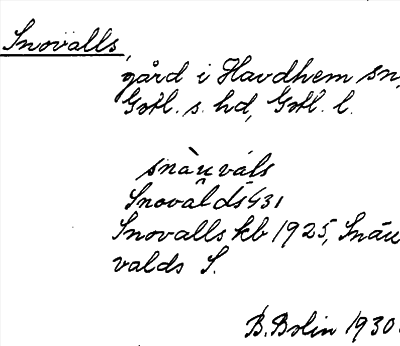 Snovalls,
gård i Havdhem sn,
Gotl. s. hd, Gotl. l.
snàuvàls
Snovalds 431
Snovalls kb 1925, Snäu
valds S.
B. Bolin 1930.